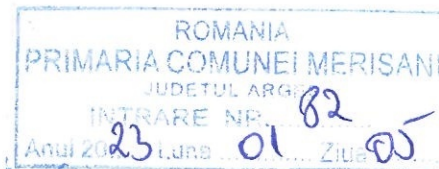 ROMANIA
PRIMARIA COMUNEI MERISANI
JUDETUL ARGE
INTRARE NR. 82
Anul 2023 Luna 01 Ziua 05